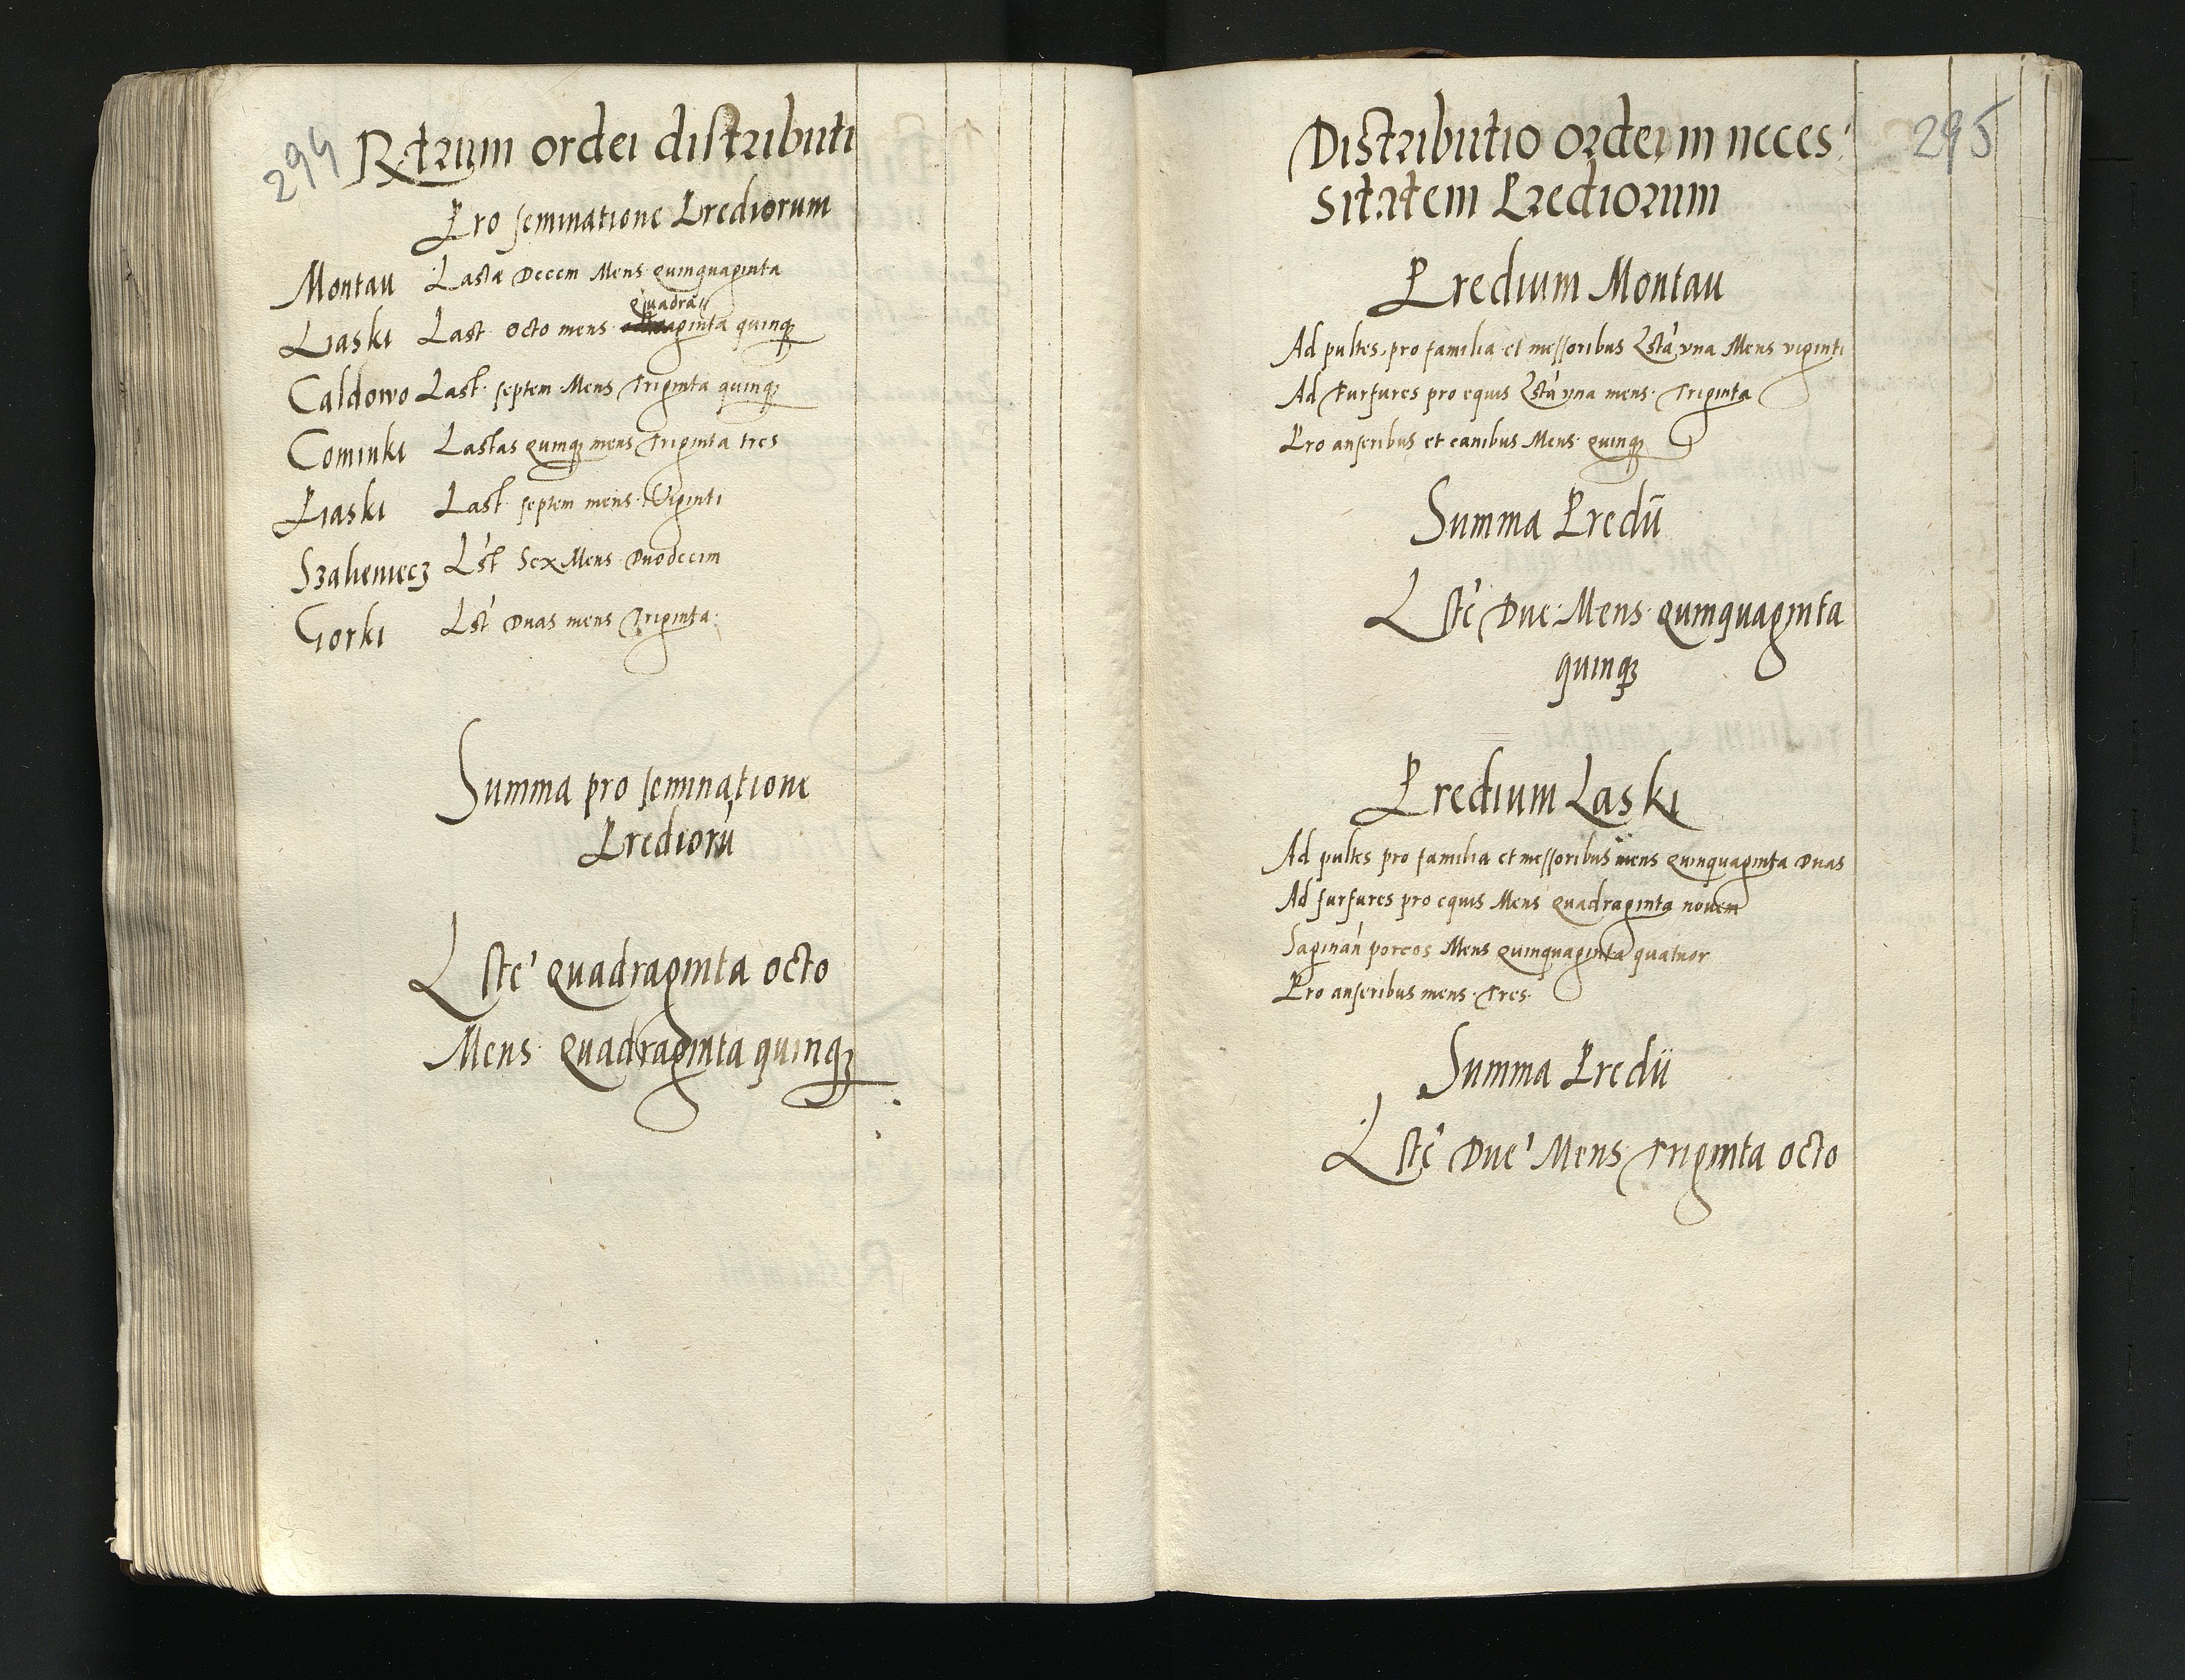 294
Rtrum ordei distributi
Pro seminatione Prediorum
Montau Lasta Decem Mens quinquaginta
quadra
Liaski Last octo mens aginta quinq3
Caldowo Last septem Mens Triginta quinq3
Cominki Lastas quinq3 mens Triginta tres
Piaski Last septem mens Viginti
Szalieniecz L'st Sex Mens Duodecim
Gorki Lst' Duas mens Triginta
Summa pro seminatione
Predioru̅
Lste' quadraginta octo
Mens quadraginta quinq3
295
Distributio ordei in neces:
sitatem Prediorum
Predium Montau
Ad pultes pro familia et messoribus Lsta' vna Mens viginti
Ad Furfures pro equis Lsta' vna mens Triginta
Pro anseribus et canibus Mens quinq3
Summa Predii
Lste' Due Mens quinquaginta
quinq3
Predium Laski
Ad pultes pro familia et messoribus mens quinquaginta Duas
Ad furfures pro equis Mens quadraginta novem
Saginan' porcos Mens quinquaginta quatuor
Pro anseribus mens Tres
Summa Predii
Lste' Due' Mens Triginta octo